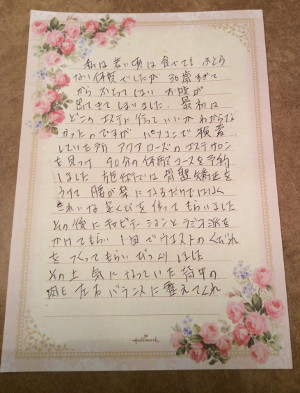 私は若い頃は食べても ふとら
ない体質でしたが 30歳すぎて
から ふとってしまい お腹が
出てきてしまいました。最初は
どこのエステに行っていいかわからな
かったのですが パソコンで検索
していた所 アクアローズのエステサロン
を見つけ 90分の体験コースを予約
しました 施術では 骨盤矯正を
うけて 腰が楽になるだけではなく
きれいなくびれを作ってもらいました
その後にキャビテーションとラジオ波を
かけてもらい 1回でウエストのくびれ
をつくってもらい びっくりしました
その上 気になっていた背中の
左右バランスに整えてくれ
Hallmark